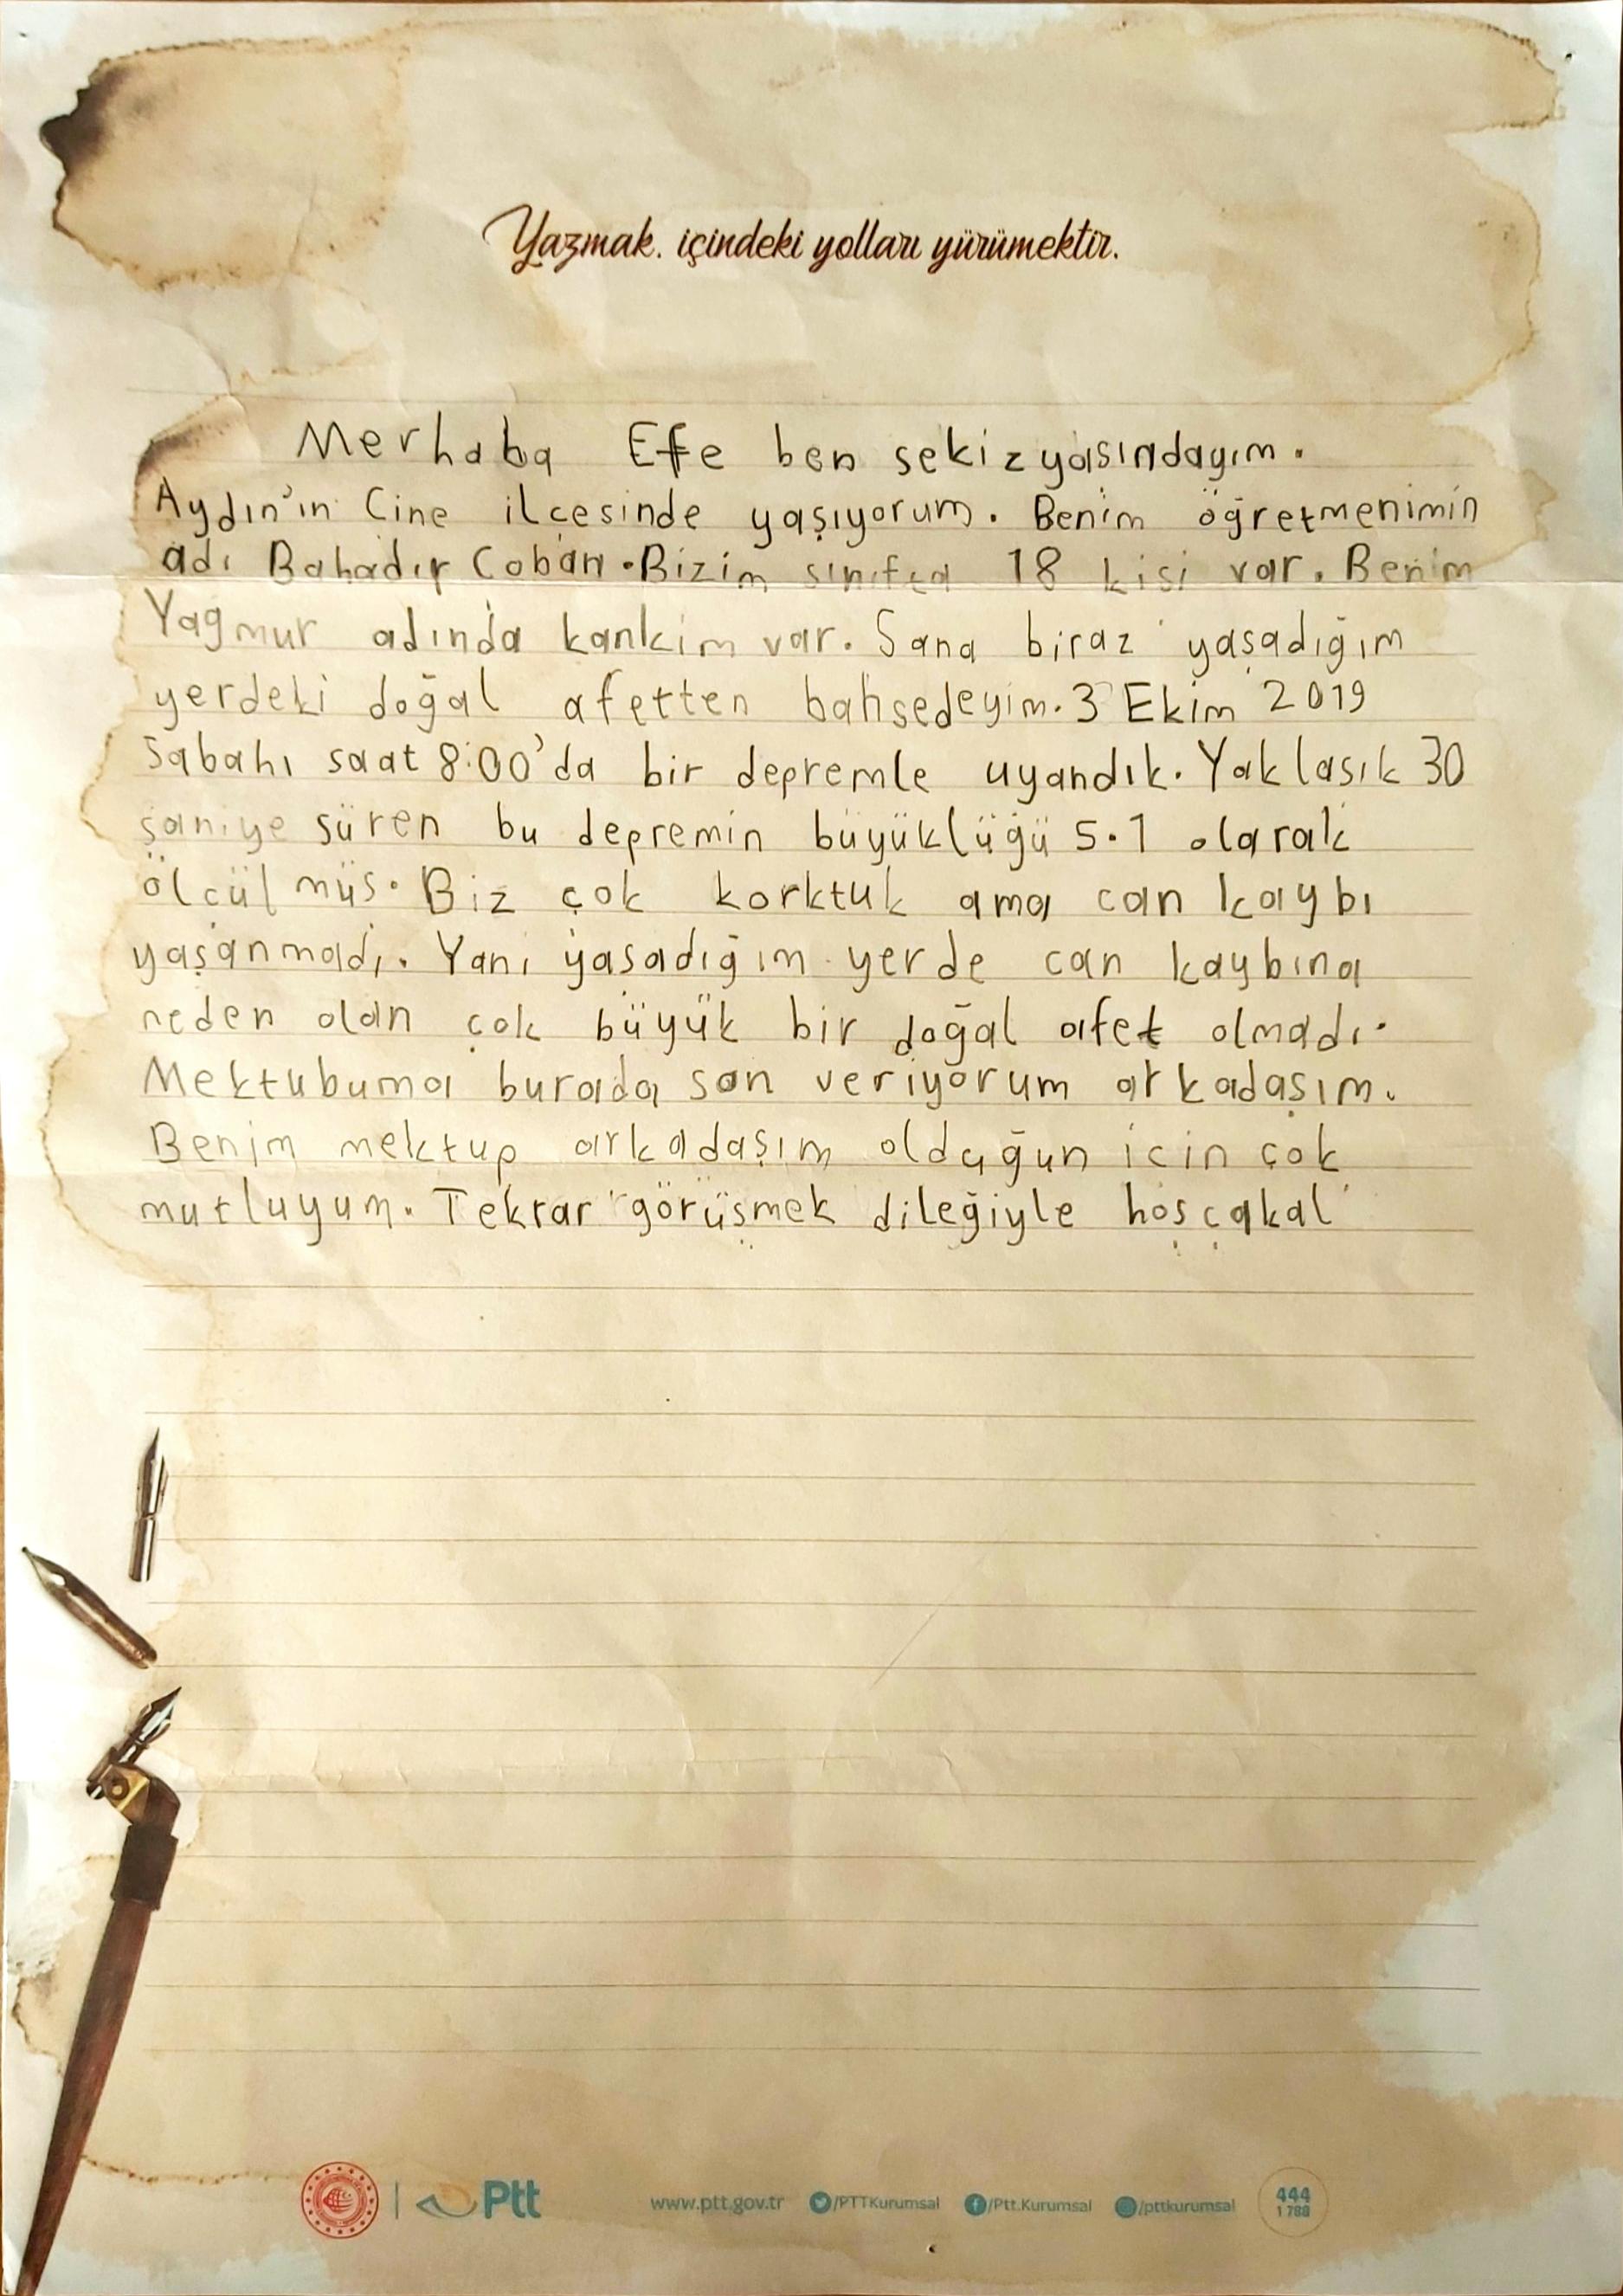 Yazmak. içindeki yolları yürümektir.
Merhaba Efe ben sekiz yaşındayım.
Aydın'ın Çine ilçesinde yaşıyorum. Benim öğretmenimin
adı Bahadır Çoban. Bizim sınıfta 18 kişi var. Benim
Yağmur adında kankim var. Sana biraz yaşadığım
yerdeki doğal afetten bahsedeyim. 3 Ekim 2019
Sabahı saat 8:00'da bir depremle uyandık. Yaklaşık 30
saniye süren bu depremin büyüklüğü 5.1 olarak
ölçülmüş. Biz çok korktuk ama can kaybı
yaşanmadı. Yani yaşadığım yerde can kaybına
neden olan çok büyük bir doğal afet olmadı.
Mektubuma burada son veriyorum arkadaşım.
Benim mektup arkadaşım olduğun için çok
mutluyum. Tekrar görüşmek dileğiyle hoşçakal
Ptt www.ptt.gov.tr /PTTKurumsal /Ptt.Kurumsal /pttkurumsal 444
1 788